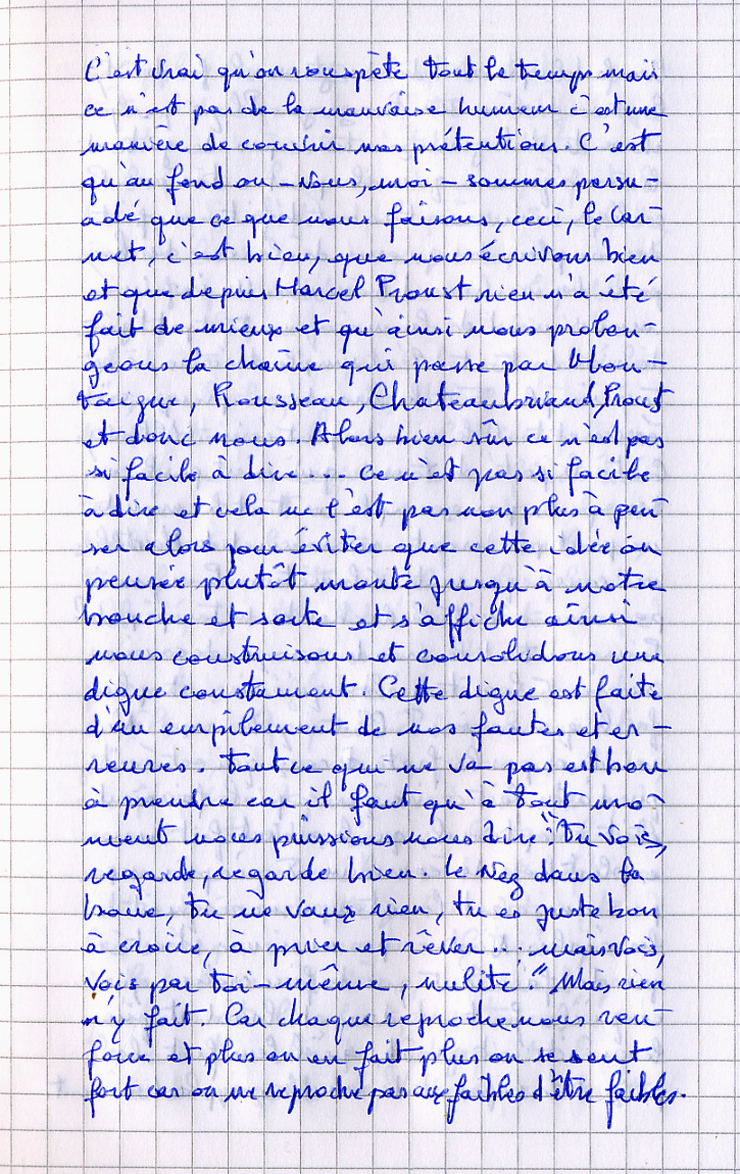 C'est vrai qu'on rouspète tout le temps mais
ce n'est pas de la mauvaise humeur c'est une
manière de couvrir nos prétentions. C'est
qu'au fond on - nous, moi - sommes persu-
adé que ce que nous faisons, ceci, le Car-
net, c'est bien, que nous écrivons bien
et que depuis Marcel Proust rien n'a été
fait de mieux et qu'ainsi nous prolon-
geons la chaîne qui passe par Mon-
taigne, Rousseau, Chateaubriand, Proust
et donc nous. Alors bien sûr ce n'est pas
si facile à dire... Ce n'est pas si facile
à dire et cela ne l'est pas non plus à pen-
ser alors pour éviter que cette idée ou
pensée plutôt monte jusqu'à notre
bouche et sorte et s'affiche ainsi
nous construisons et consolidons une
digue constament. Cette digue est faite
d'un empilement de nos fautes et er-
reures. Tout ce qui ne va pas est bon
à prendre car il faut qu'à tout mo-
ment nous puissions nous dire : "Tu vois,
regarde, regarde bien. Le nez dans la
boue, tu ne vaux rien, tu es juste bon
à croire, à prier et rêver... mais vois,
vois par toi-même, nulité." Mais rien
n'y fait. Car chaque reproche nous ren-
force et plus on en fait plus on se sent
fort car on ne reproche pas aux faibles d'être faibles.